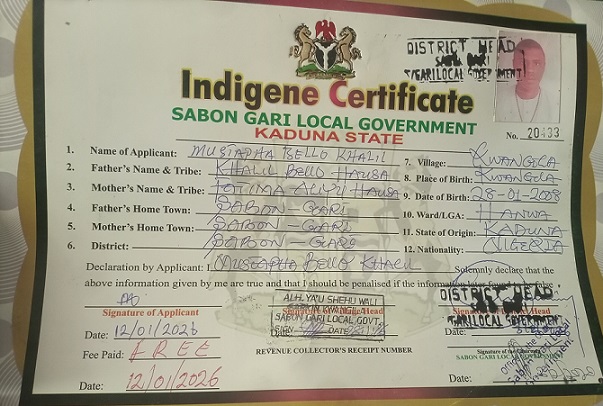 DISTRICT HEAD
Indigene Certificate
SABON GARI LOCAL GOVERNMENT
KADUNA STATE
No. 20433
1. Name of Applicant: MUSTAPHA BELLO KHALIL
2. Father's Name & Tribe: KHALIL BELLO HAUSA
3. Mother's Name & Tribe: HAUSA
4. Father's Home Town: SABON - GARI
5. Mother's Home Town: SABON - GARI
6. District: SABON - GARI
7. Village: KWANGILA
8. Place of Birth: KWANGILA
9. Date of Birth: 28-01-2008
10. Ward/LGA: HANWA
11. State of Origin: KADUNA
12. Nationality: NIGERIA
Declaration by Applicant: I MUSTAPHA BELLO KHALIL Solemnly declare that the
above information given by me are true and that I should be penalised if the information
Signature of Applicant
Date: 12/01/2026
Fee Paid: FREE
Date: 12/01/2026
ALH. YA'U SHEHU WALI
SABON GARI LOCAL GOVT.
DATE
Date:
REVENUE COLLECTOR'S RECEIPT NUMBER
DISTRICT HEAD
S/GARI LOCAL GOVERNMENT
SABON GARI LOCAL GOVERNMENT
Date: